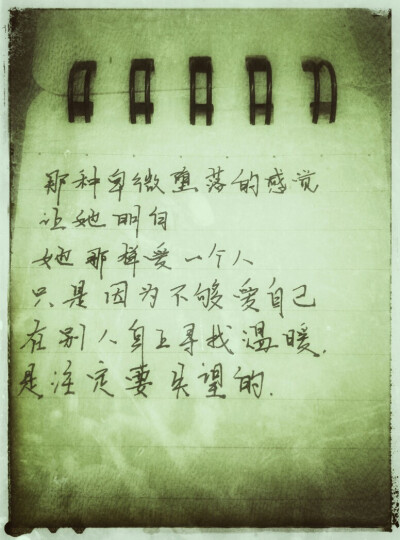 那种卑微堕落的感觉
让她明白
她那样爱一个人
只是因为不够爱自己
在别人身上寻找温暖,
是注定要失望的.